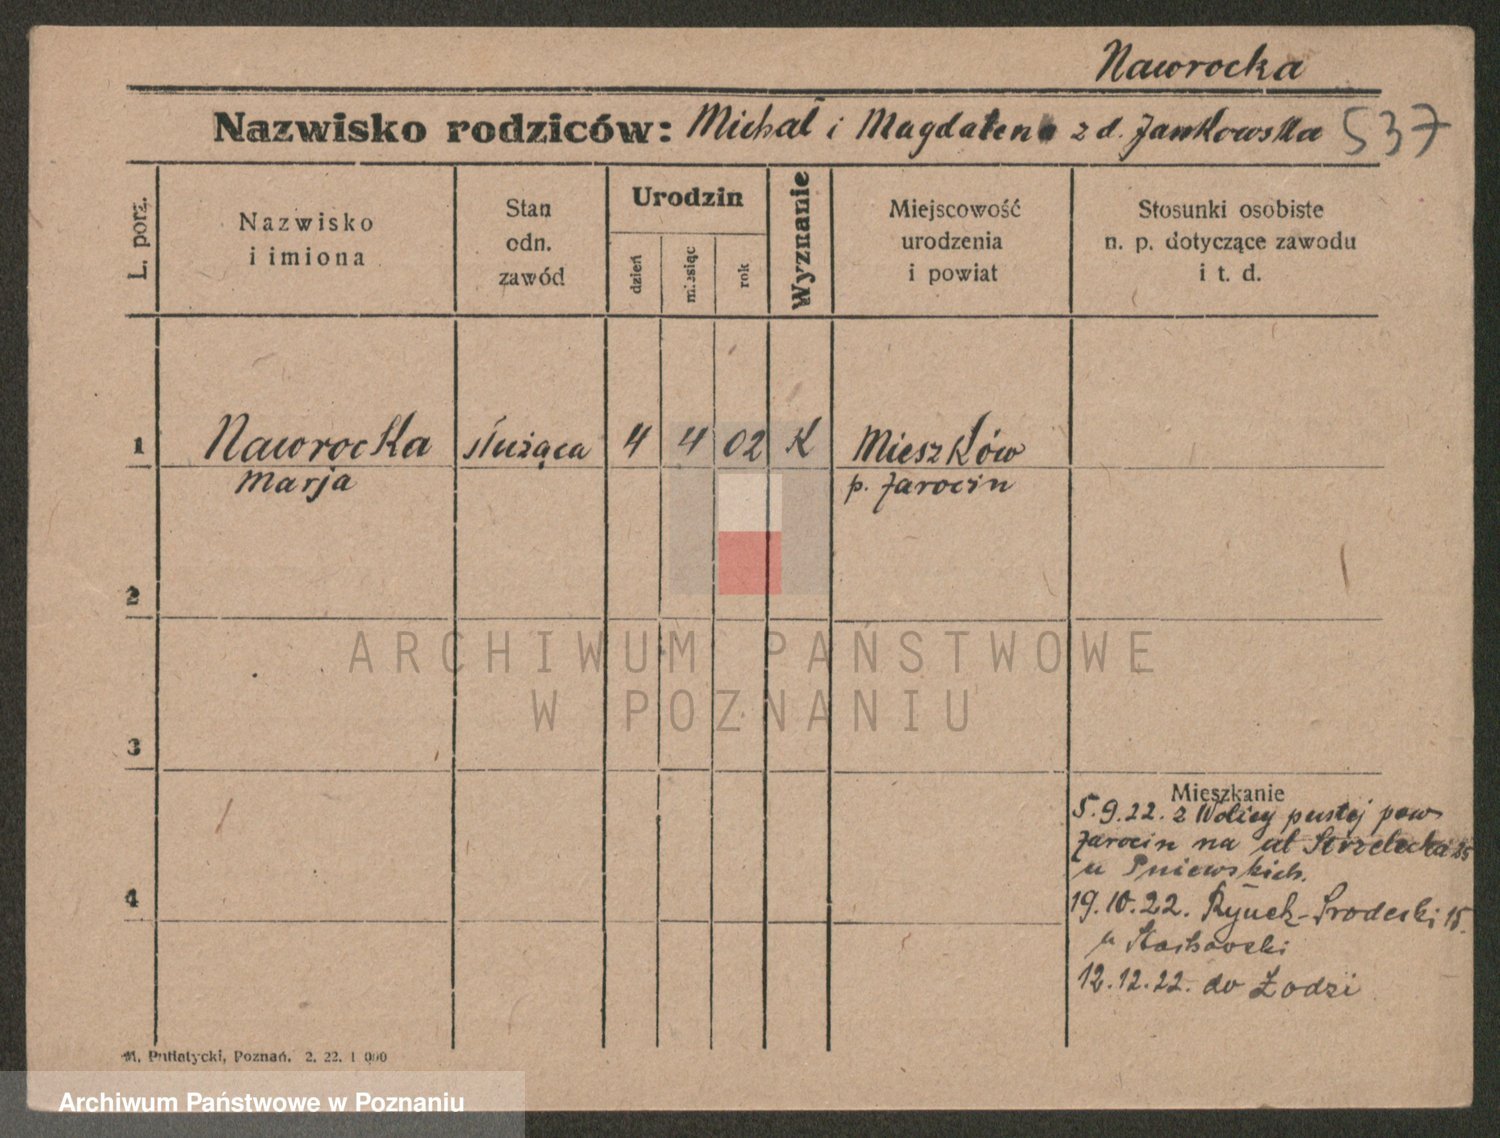 Naworocka
Nazwisko rodziców: Michał i Magdalena z d. Jankowska 537
L. porz.
Nazwisko
i imiona
Stan
odn.
zawód
Urodzin
dzień
miesiąc
rok
Wyznanie
Miejscowość
urodzenia
i powiat
Stosunki osobiste
n. p. dotyczące zawodu
i t. d.
1
Naworocka
Marja
służąca
4
4
02
K
Mieszków
p. Jarocin
2
3
4
Mieszkanie
5.9.22. z Wolicy pustej pow
Jarocin na ul Strzelecka 25
u Pniewskich.
19.10.22. Rynek-Srodecki 15.
u
12.12.22. do Łodzi
M. Putiatycki, Poznań. 2. 22. 1 000
ARCHIWUM PAŃSTWOWE
W POZNANIU
Archiwum Państwowe w Poznaniu